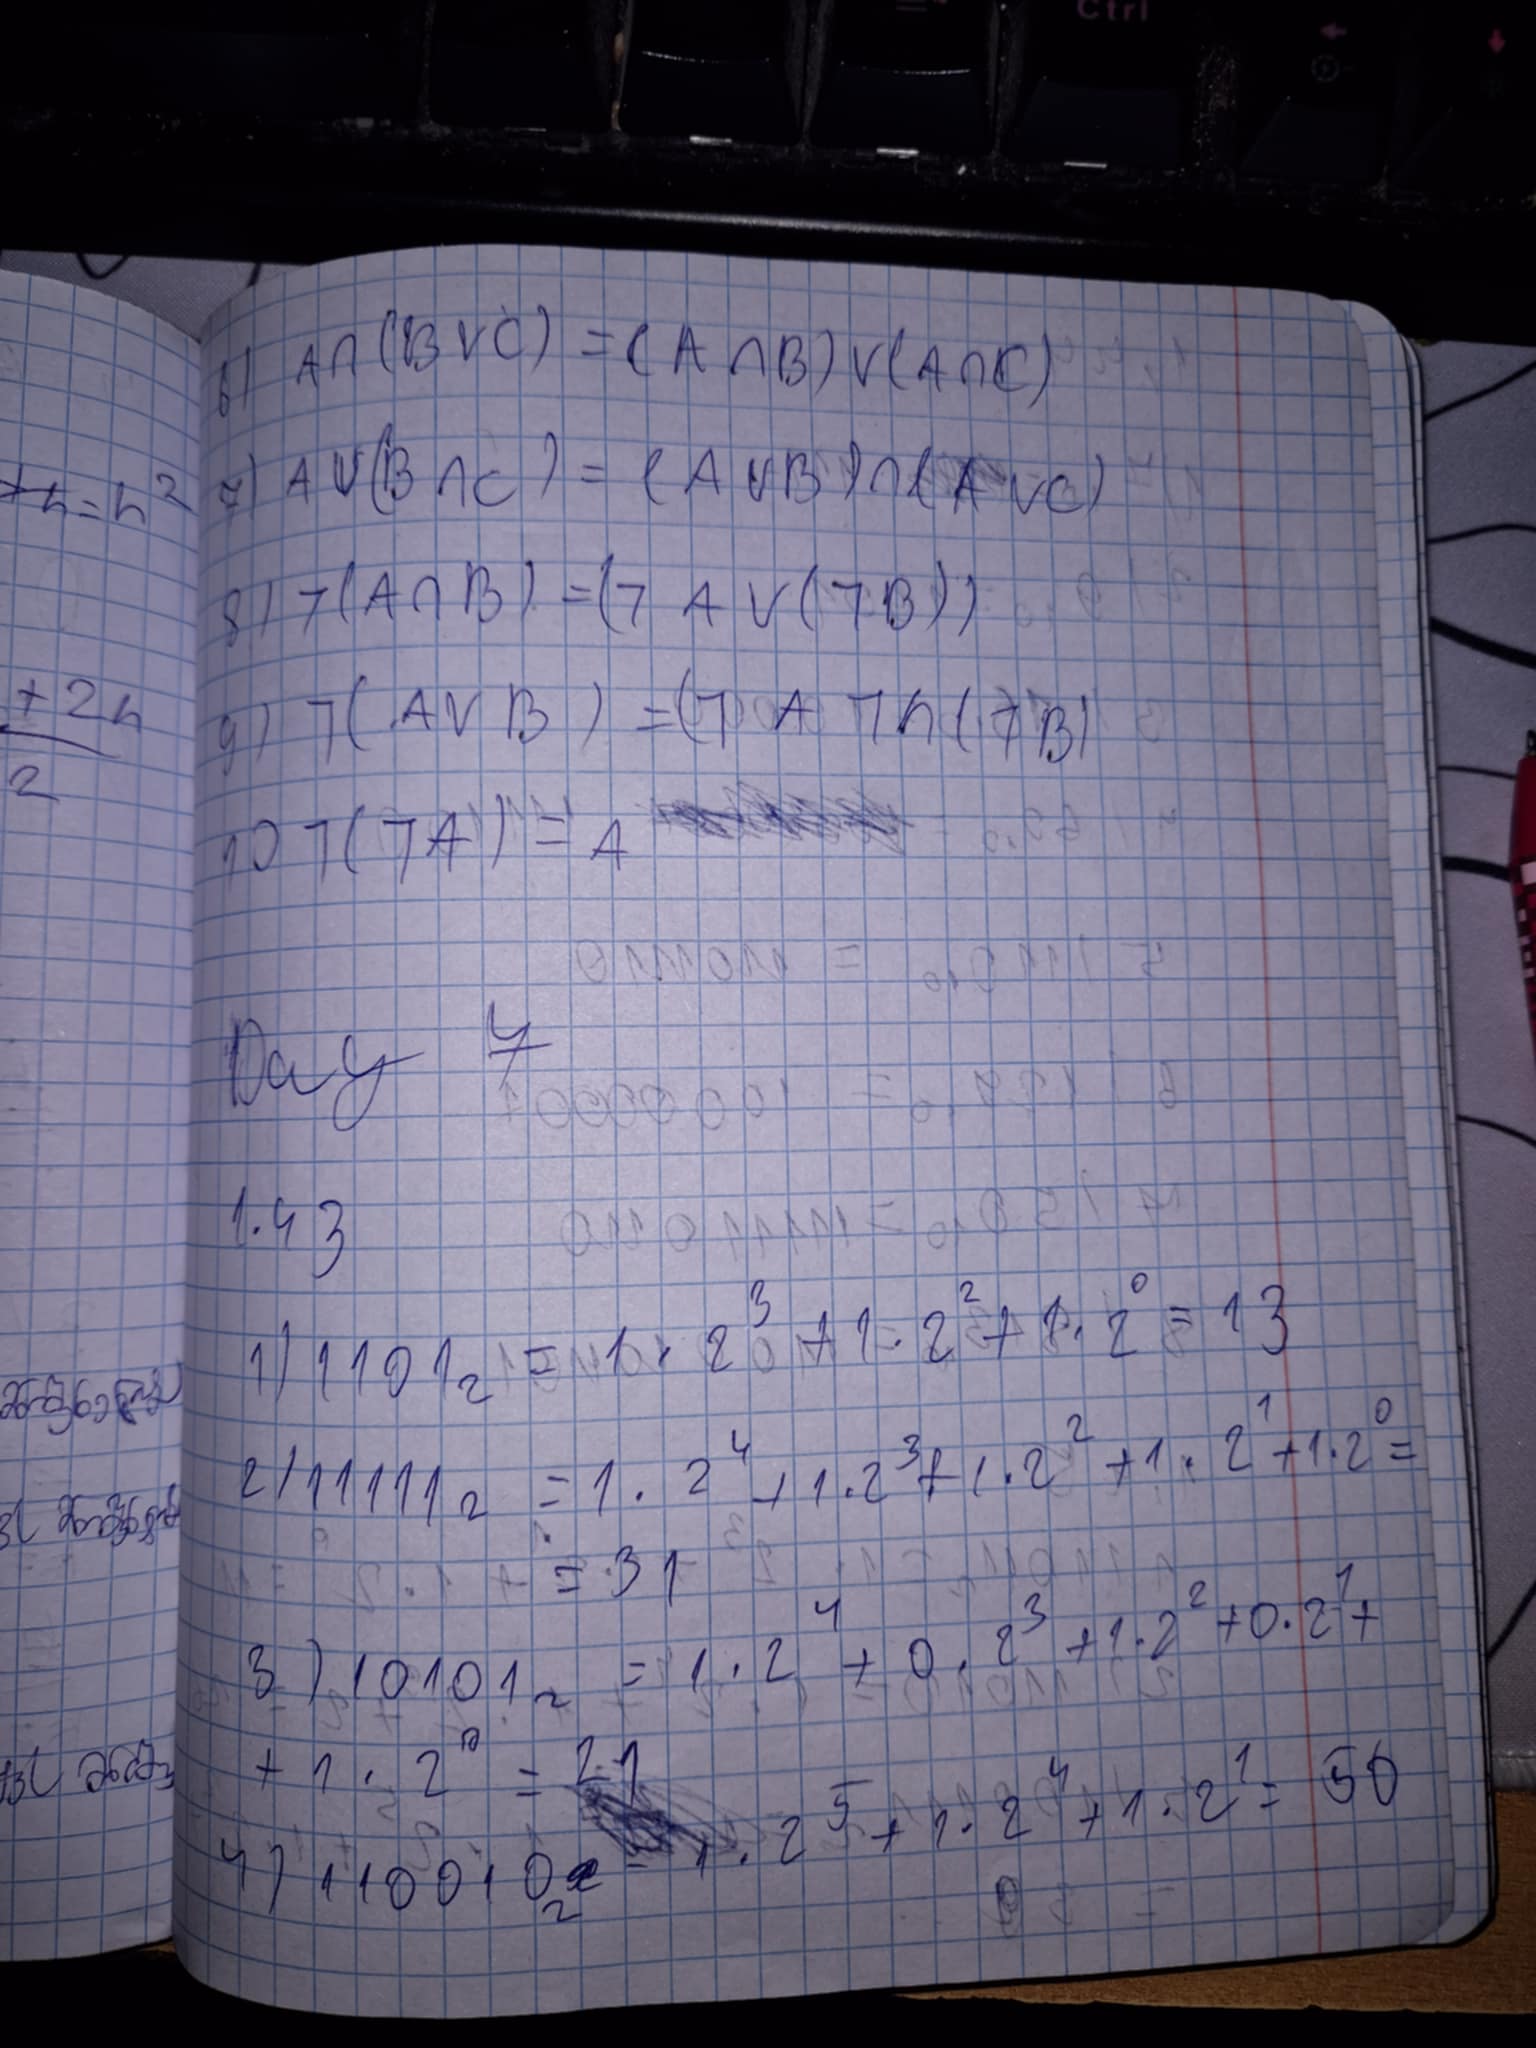 Ctrl
6) A∩(B∨C) = (A∩B)∨(A∩C)
7) A∨(B∩C) = (A∨B)∩(A∨C)
8) ㄱ(A∩B) = (ㄱ A ∨(ㄱB))
9) ㄱ(A∨B) = (ㄱ A ㄱ∩(ㄱB)
10 ㄱ(ㄱA) = A
Day 4
1.43
1) 1101₂ = 1·2³ + 1·2² + 1·2⁰ = 13
2) 11111₂ = 1·2⁴ + 1·2³ + 1·2² + 1·2¹ + 1·2⁰ =
= 31
3) 10101₂ = 1·2⁴ + 0·2³ + 1·2² + 0·2¹ +
+ 1·2⁰ = 21
4) 110010₂ = 1·2⁵ + 1·2⁴ + 1·2¹ = 50
+n=n²
+2n
2